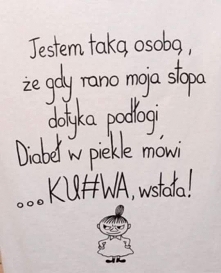 Jestem taką osobą,
że gdy rano moja stopa
dotyka podłogi
Diabeł w piekle mówi
...KU#WA, wstała!